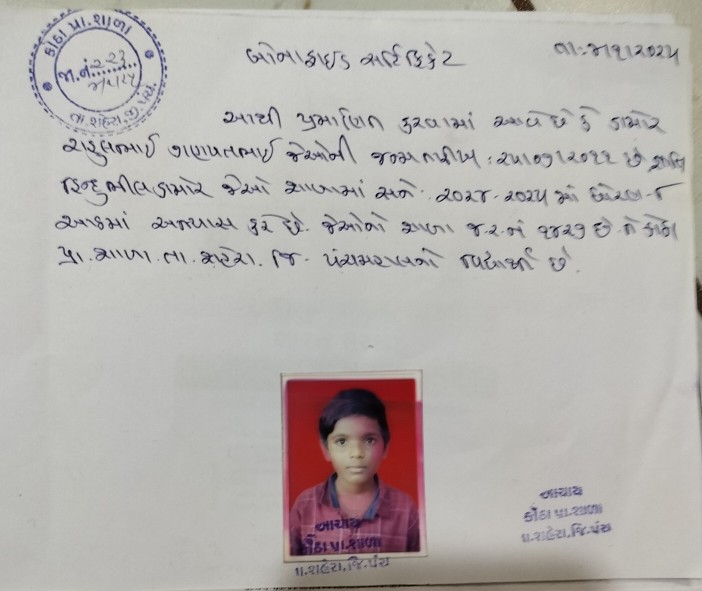 કોઠા પ્રા.શાળા
જા.નં.૨૨૩
તા.શહેરા,જી.પંચ.
બોનાફાઇડ સર્ટિફિકેટ
તા: /૧/૨૦૨૫
આથી પ્રમાણિત કરવામાં આવે છે કે ડામોર
ગણપતભાઈ જેઓની જન્મ તારીખ : છે જાતિ
હિન્દુ ભીલ ડામોર જેઓ શાળામાં સને- ૨૦૨૪-૨૦૨૫ માં ધોરણ-
અભ્યાસ કરે છે. જેઓનો શાળા જ.ર.નં છે તે કોઠા
પ્રા.શાળા.તા.શહેરા.જિ- પંચમહાલનો વિદ્યાર્થી છે.
આચાર્ય
કોઠા પ્રા.શાળા
તા.શહેરા.જિ.પંચ
આચાર્ય
કોઠા પ્રા.શાળા
તા.શહેરા.જિ.પંચ